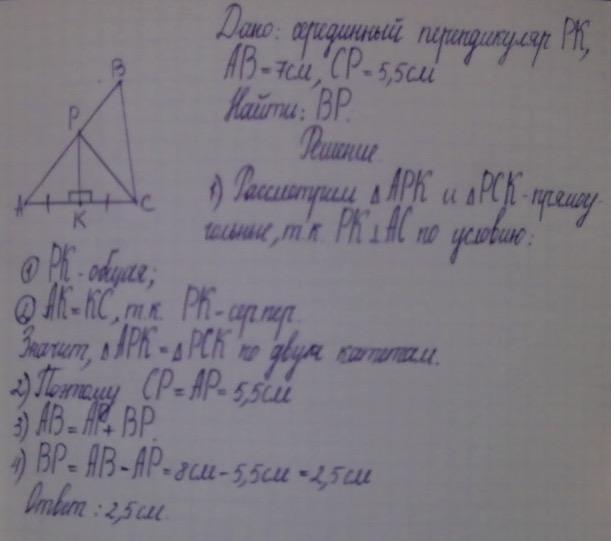 Дано: серединный перпендикуляр PK,
AB = 7см, CP = 5,5см
Найти: BP.
Решение
B
P
A
K
C
1) Рассмотрим △APK и △PCK - прямоу-
гольные, т.к. PK ⊥ AC по условию:
① PK - общая;
② AK = KC, т.к. PK - сер пер.
Значит, △APK = △PCK по двум катетам.
2) Поэтому CP = AP = 5,5см
3) AB = AP + BP.
4) BP = AB - AP = 8см - 5,5см = 2,5см
Ответ: 2,5см.